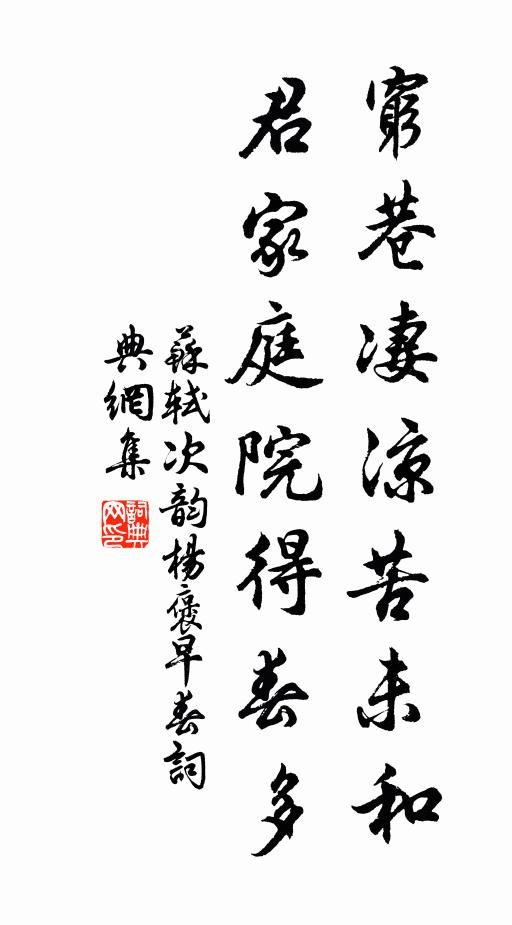 窮巷淒涼苦未和
君家庭院得春多
蘇軾次韵楊褒早春詞
典網集
詞典
网印